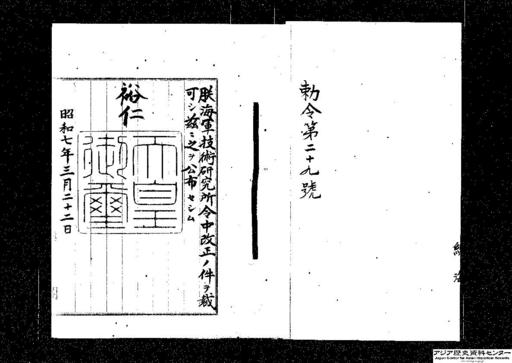 勅令第二十九號
朕海軍技術研究所令中改正ノ件ヲ裁
可シ茲ニ之ヲ公布セシム
裕仁
天皇
御璽
昭和七年三月二十二日
アジア歴史資料センター
Japan Center for Asian Historical Records